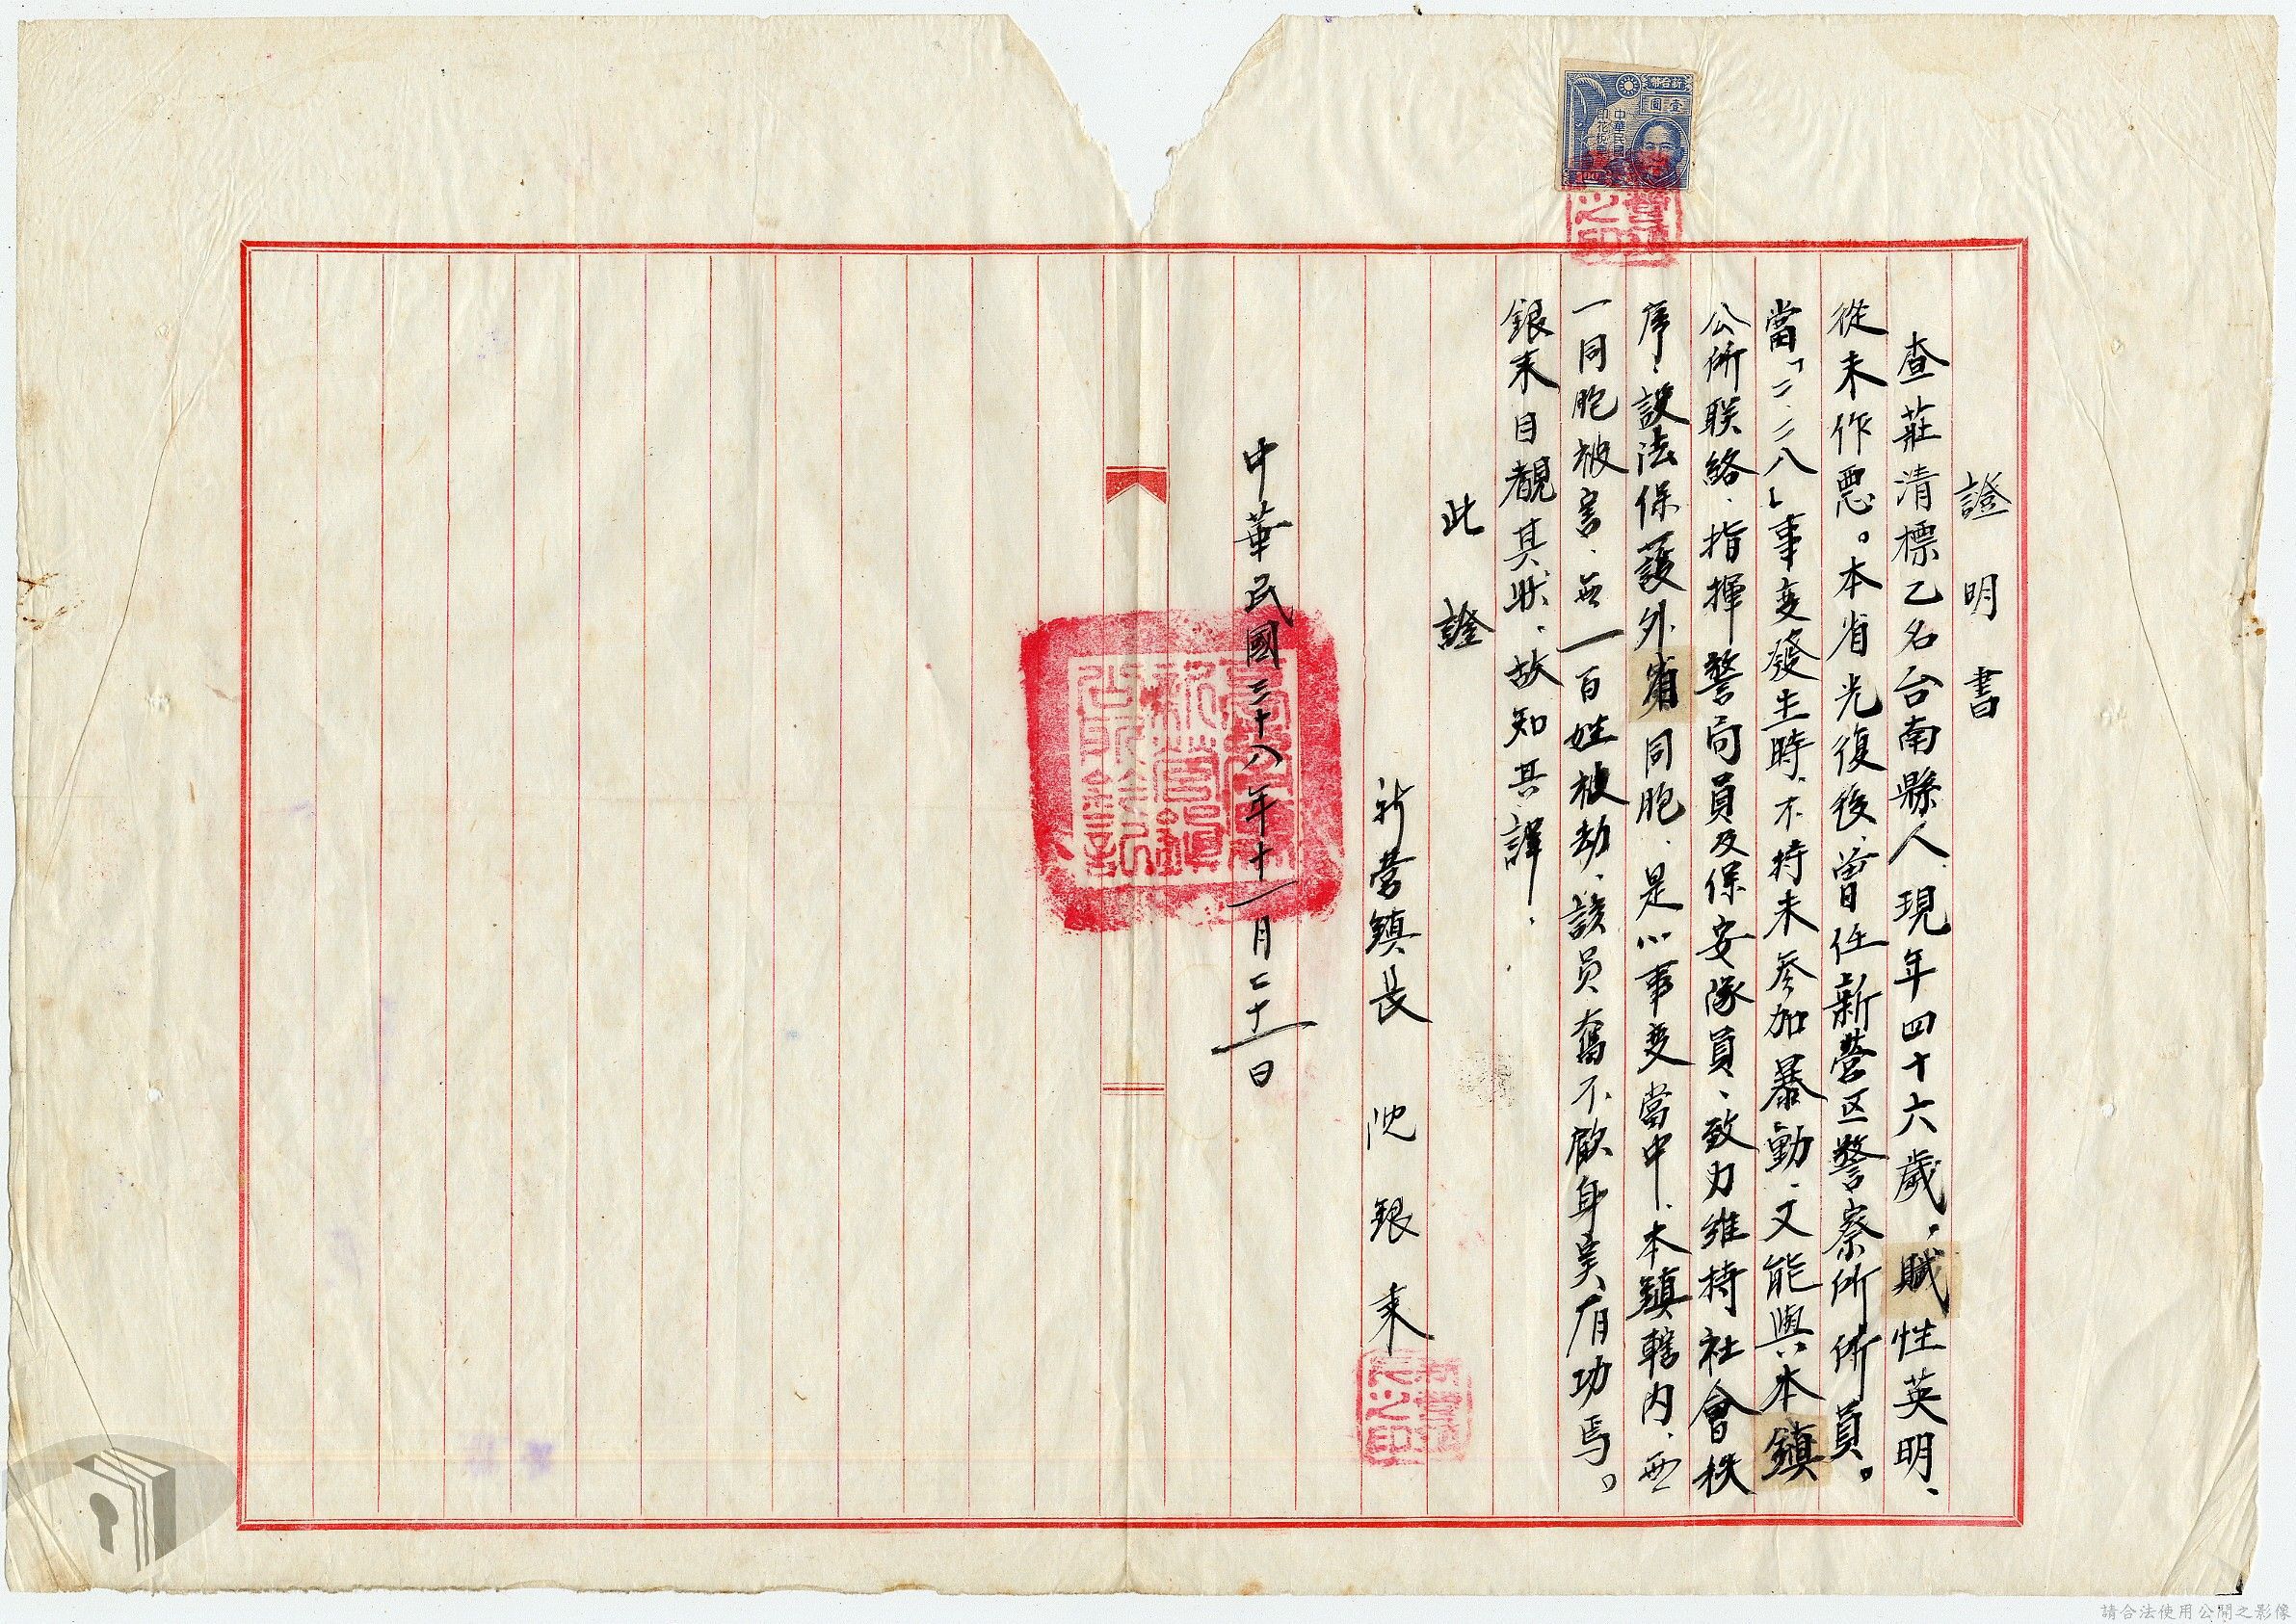 證明書
查莊清標乙名台南縣人、現年四十六歲，賦性英明、
從未作惡。本省光復後、曾任新营区警察所所員。
當「二、二八」事变發生時、不特未参加暴動、又能與本鎮
公所联絡、指揮警局員及保安隊員、致力維持社會秩
序、設法保護外省同胞、是以事变當中、本鎮轄内、無
一同胞被害、無一百姓被劫、該員奮不顧身吴有功焉。
銀来目覩其狀、故知其詳、
此證
新营鎮長 沈銀来
中華民國三十八年十一月二十一日
新台幣
壹圓
中華民國
印花稅票
請合法使用公開之影像